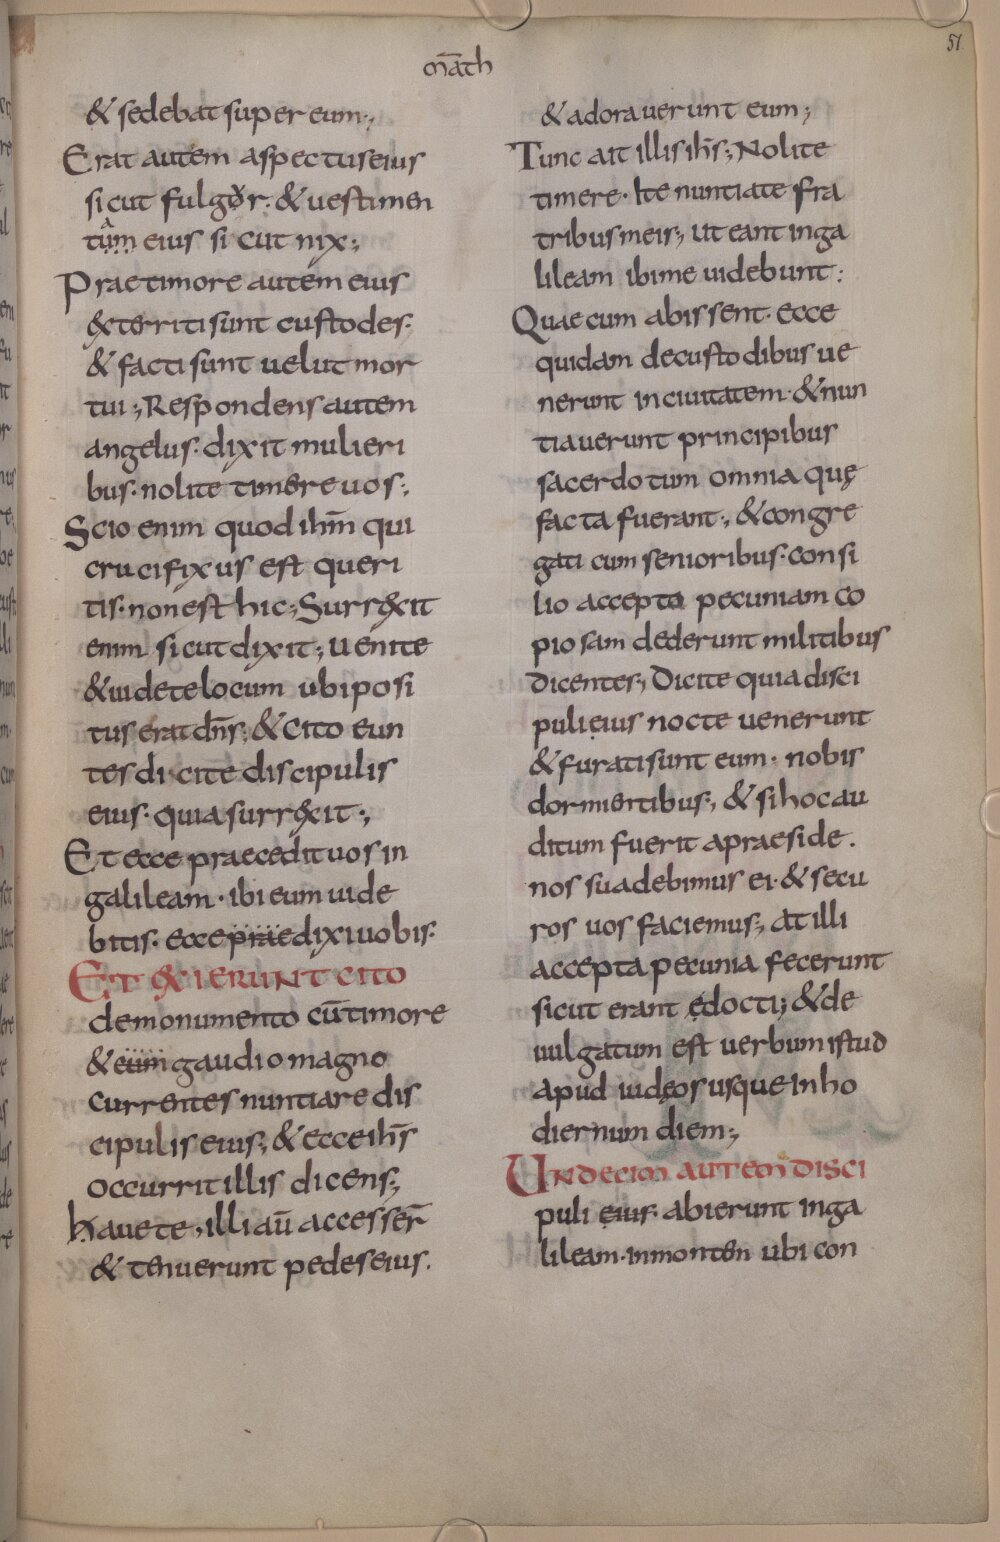 51
māth
& sedebat super eum;,
Erat autem aspectus eius
sicut fulgor. & uestimen
tum eius sicut nix;,
Prae timore autem eius
exterriti sunt custodes.
& facti sunt uelut mor
tui;, Respondens autem
angelus. dixit mulieri
bus. nolite timere uos;,
Scio enim quod ihm̄ qui
crucifixus est queri
tis. non est hic;, Surrexit
enim sicut dixit;, uenite
& uidete locum ubi posi
tus erat dn̄s;, & cito eun
tes dicite discipulis
eius. quia surrexit;,
Et ecce praecedit uos in
galileam. ibi eum uide
bitis. ecce prae dixi uobis.
ET EXIERUNT CITO
de monumento cū timore
& cum gaudio magno
currentes nuntiare dis
cipulis eius;, & ecce ihs̄
occurrit illis dicens;,
hauete, illi aū accesser̄
& tenuerunt pedes eius.
& adorauerunt eum;,
Tunc ait illis ihs̄;, Nolite
timere. Ite nuntiate fra
tribus meis;, ut eant in ga
lileam ibi me uidebunt:
Quae cum abissent. ecce
quidam de custodibus ue
nerunt in ciuitatem. & nun
tiauerunt principibus
sacerdotum omnia quę
facta fuerant;, & congre
gati cum senioribus. consi
lio accepto pecuniam co
piosam dederunt militibus
dicentes;, Dicite quia disci
puli eius nocte uenerunt
& furati sunt eum. nobis
dormientibus;, & si hoc au
ditum fuerit a praeside.
nos suadebimus ei. & secu
ros uos faciemus;, at illi
accepta pecunia fecerunt
sicut erant edocti;, & de
uulgatum est uerbum istud
apud iudęos usque in ho
diernum diem;,
UNDECIM AUTEM DISCI
puli eius. abierunt in ga
lileam. in montem ubi con